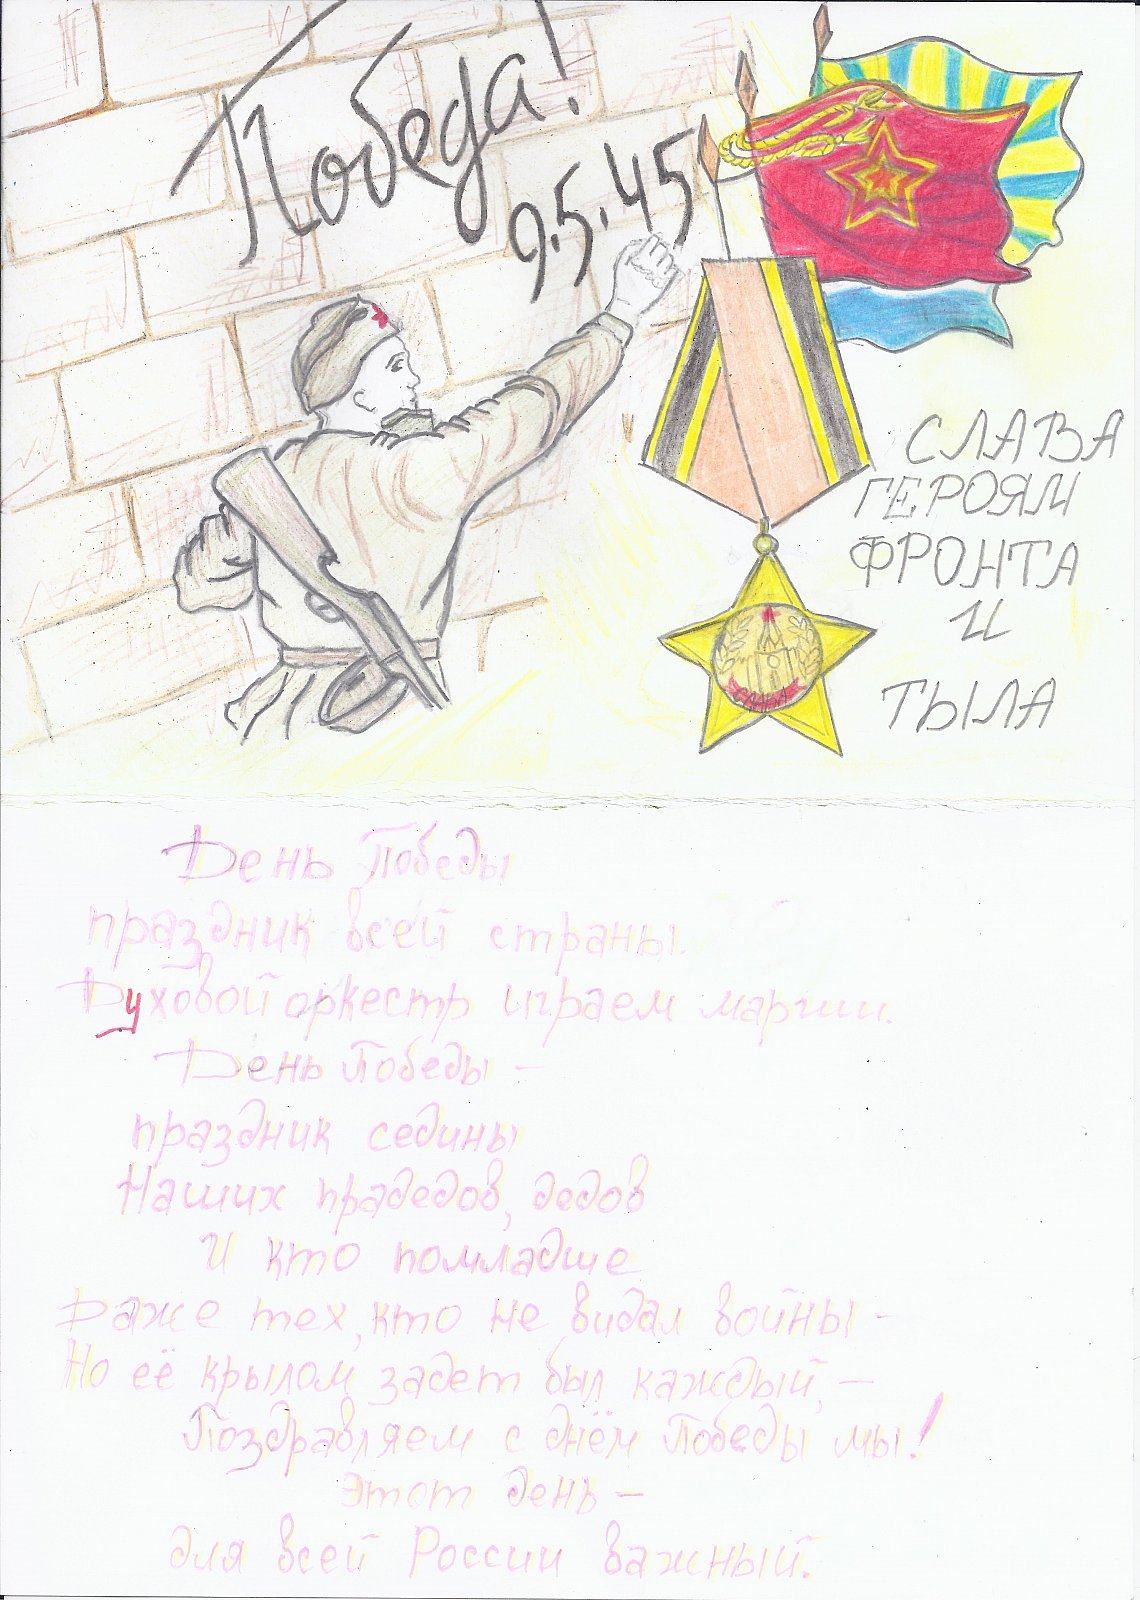 Победа!
9.5.45
СЛАВА
ГЕРОЯМ
ФРОНТА
И
ТЫЛА
СЛАВА
День Победы
праздник всей страны.
Духовой оркестр играем марши.
День Победы –
праздник седины
Наших прадедов, дедов
И кто помладше
Даже тех, кто не видал войны –
Но её крылом задет был каждый, –
Поздравляем с днём Победы мы!
Этот день –
для всей России важный.